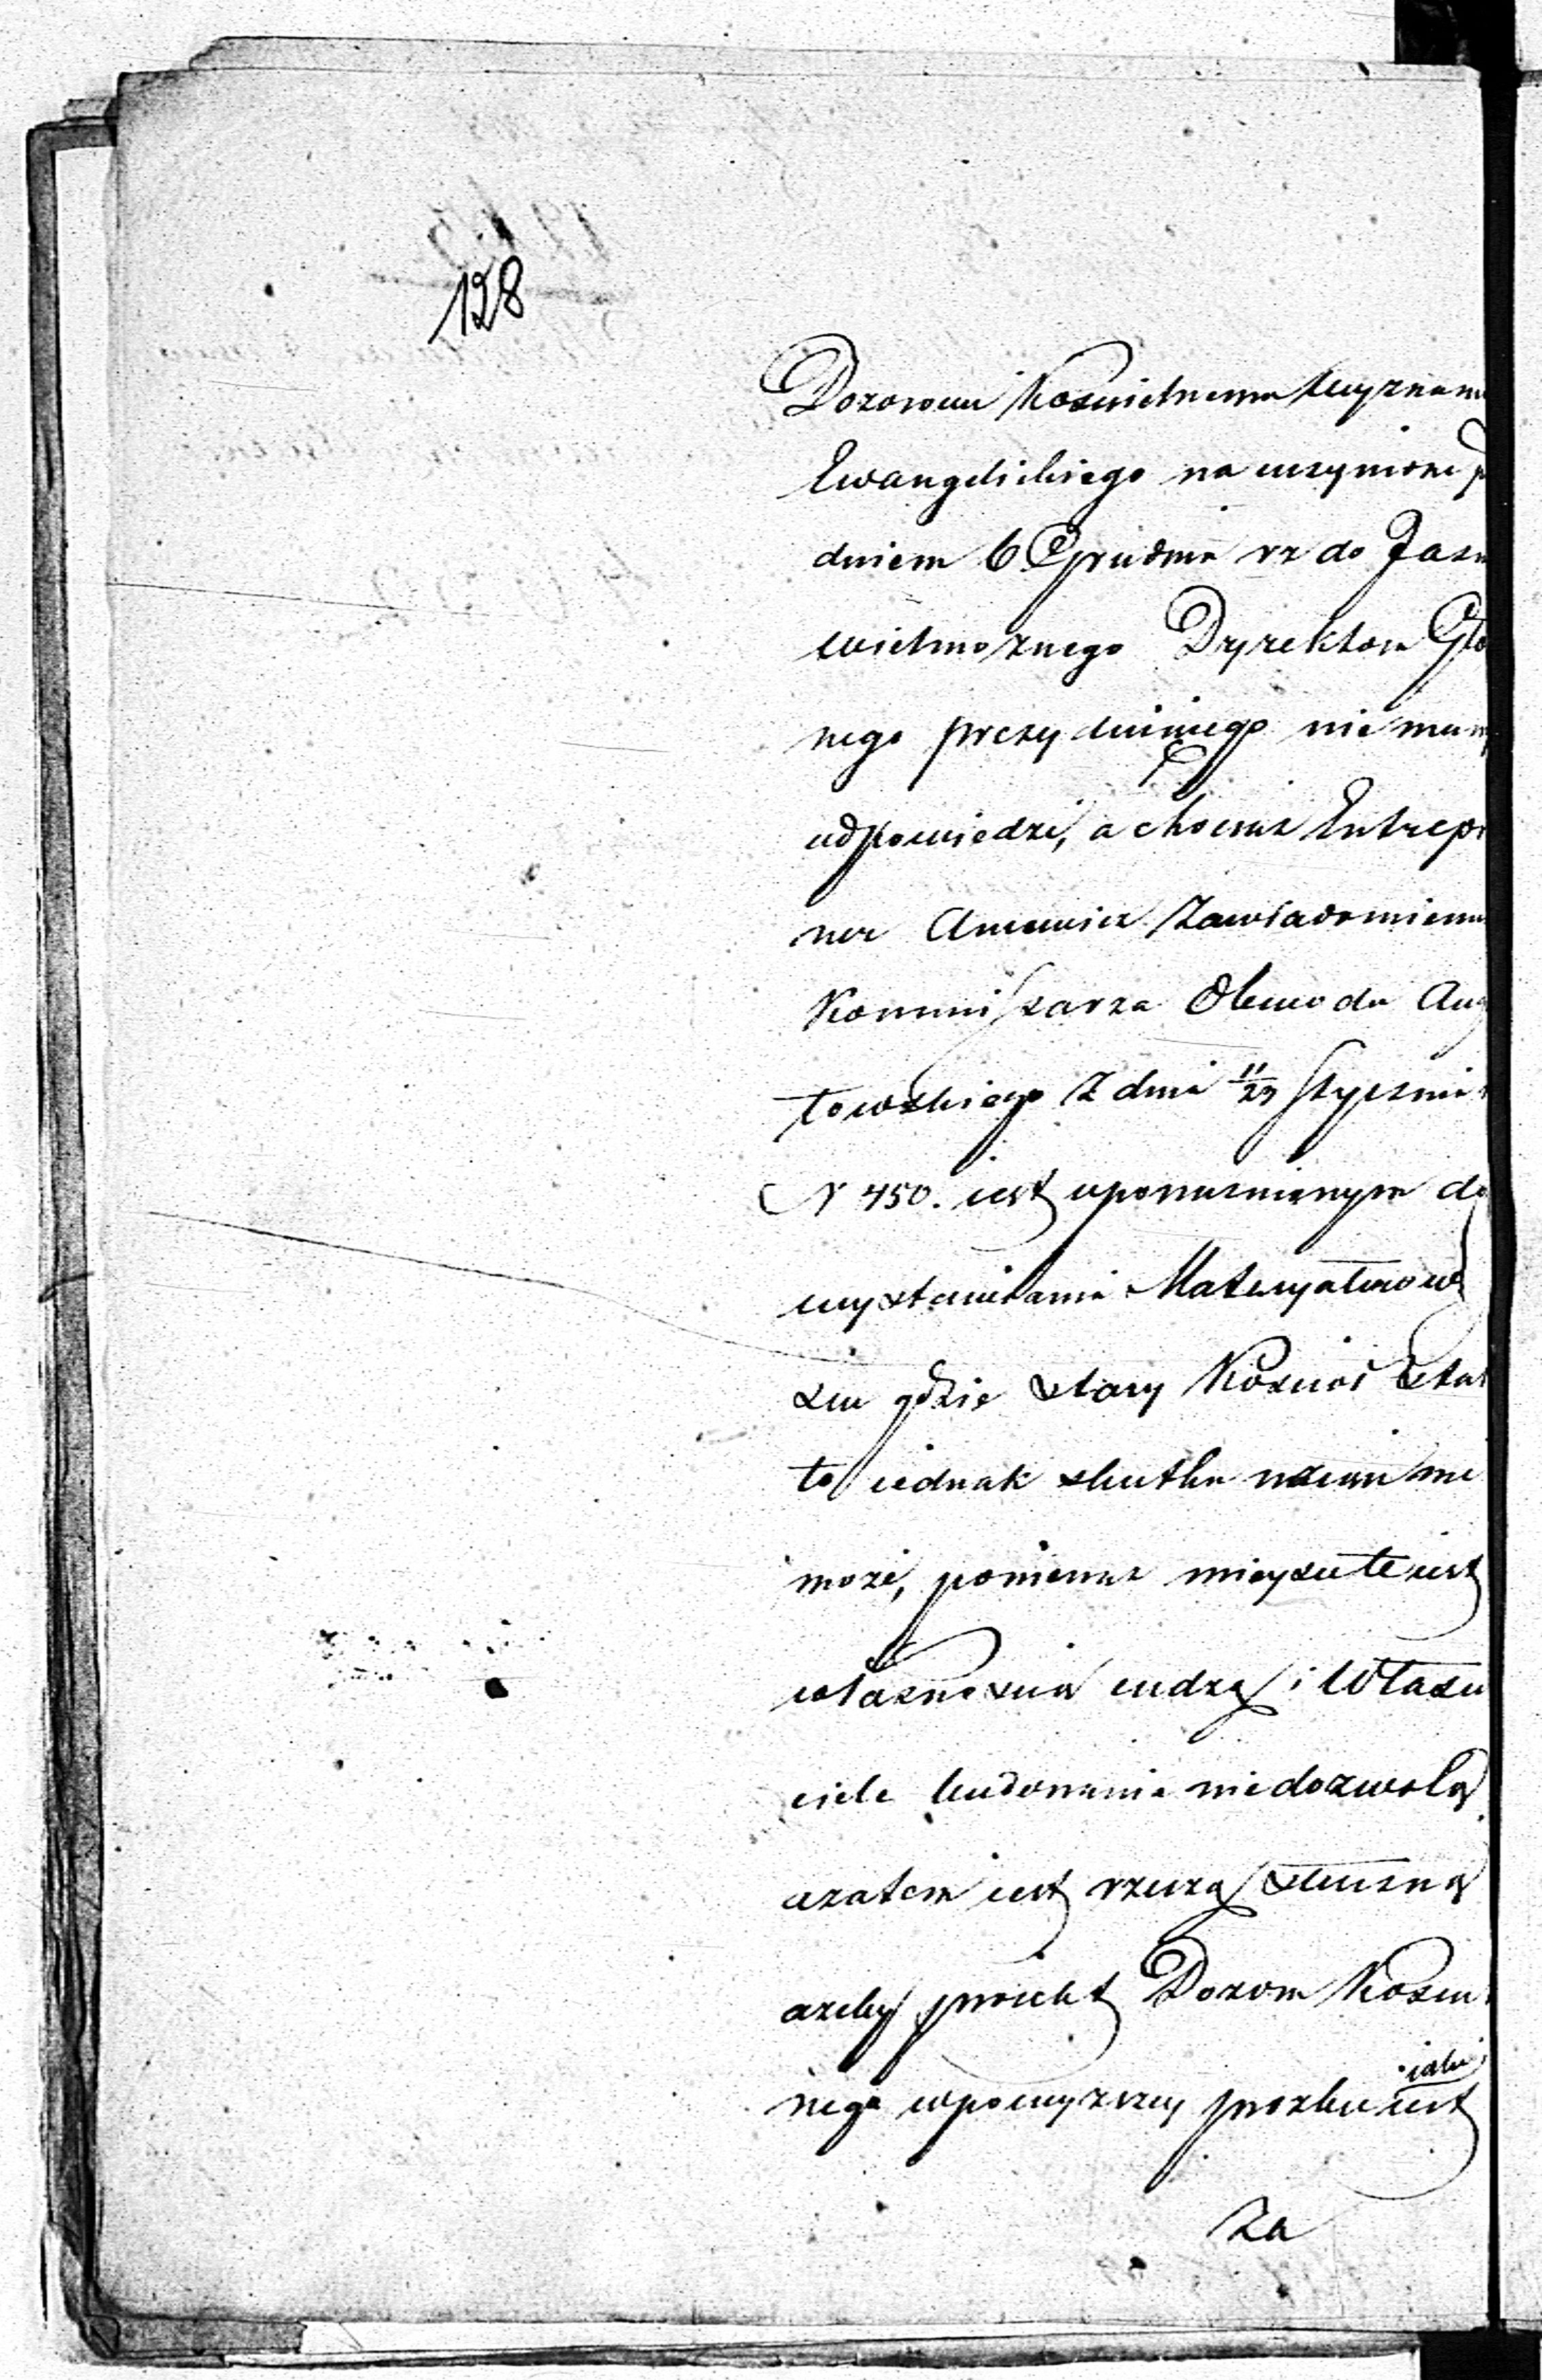 128
Dozorowi Kościelnemu Wyznani
Ewangelickiego na uczynione p
dniem 6 Grudnia rz do Jasn
wielmożnego Dyrektora Głó
nego prezyduiącego niemamy
odpowiedzi, a chociaż Entrepr
ner zawiadomieniem
Kommissarza Obwodu Aug
towskiego z dnia 11/23 Stycznia
N 450. iest upoważnionym do
wystawiania Materyałów w
gdzie stary Kościoł stał
to iednak skutku wziąć nie
może, ponieważ mieysce te iest
własnością cudzą i Właści
ciele budowania niedozwolą
azatem iest rzeczą słuszną
ażeby proiekt Dozoru Kościel
nego wpowyższey prozbie iest
iaki
Za